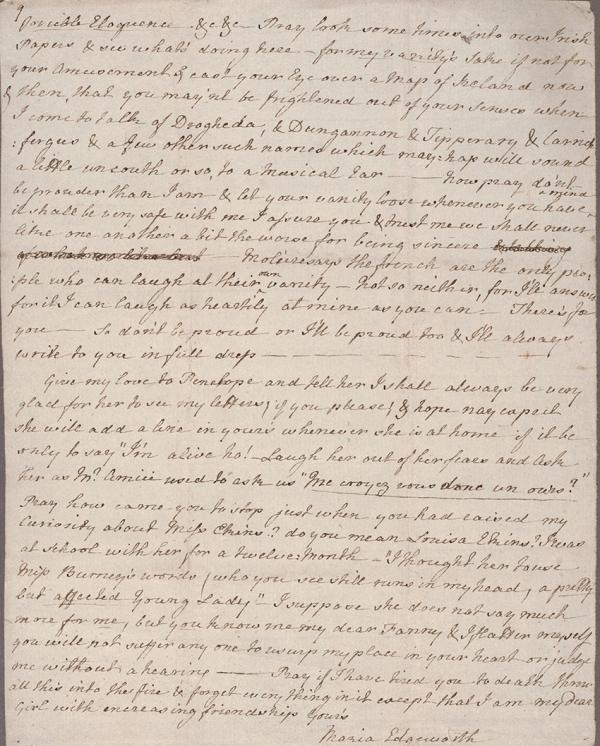 9
Forcible Eloquence &c &c - Pray look some times into our Irish
Papers & see what's doing here - for my vanity's sake if not for
your Amusement & cast your Eye over a Map of Ireland now
& then, that you mayn't be frightened out of your senses when
I come to talk of Drogheda, & Dungannon & Tipperary & Carrick
:fergus & a few other such names which may-hap will sound
a little uncouth or so, to a Musical Ear —— Now pray don't
be prouder than I am & let your vanity loose whenever you have a mind
it shall be very safe with me I assure you & trust me we shall never
like one another a bit the worse for being sincere
— Moliere says the french are the only peo-
:ple who can laugh at their own vanity - Not so neither, for I'll answer
for it I can laugh as heartily at mine as you can - There's for
you — So don't be proud or I'll be proud too & I'll always
write to you in full dress — — — — — —
Give my love to Penelope and tell her I shall always be very
glad for her to see my letters, if you please, & hope nay expect
she will add a line in yours whenever she is at home if it be
only to say "I'm alive ho! - Laugh her out of her fears and Ask
her as Mr. Amiii used to ask us "Me croyez vous donc un ours?"
Pray how came you to stop just when you had raised my
Curiosity about Miss Ekins? do you mean Louisa Ekins? I was
at school with her for a twelve:Month - "I thought her to use
Miss Burney's words (who you see still runs in my head, a pretty
but affected Young Lady" - I suppose she does not say much
more for me, but you know me my dear Fanny & I flatter myself
you will not suffer any one to usurp my place in your heart or judge
me without a hearing —— Pray if I have tired you to death throw
all this into the fire & forget every thing in it except that I am my dear
Girl with encreasing friendship Yours
Maria Edgeworth